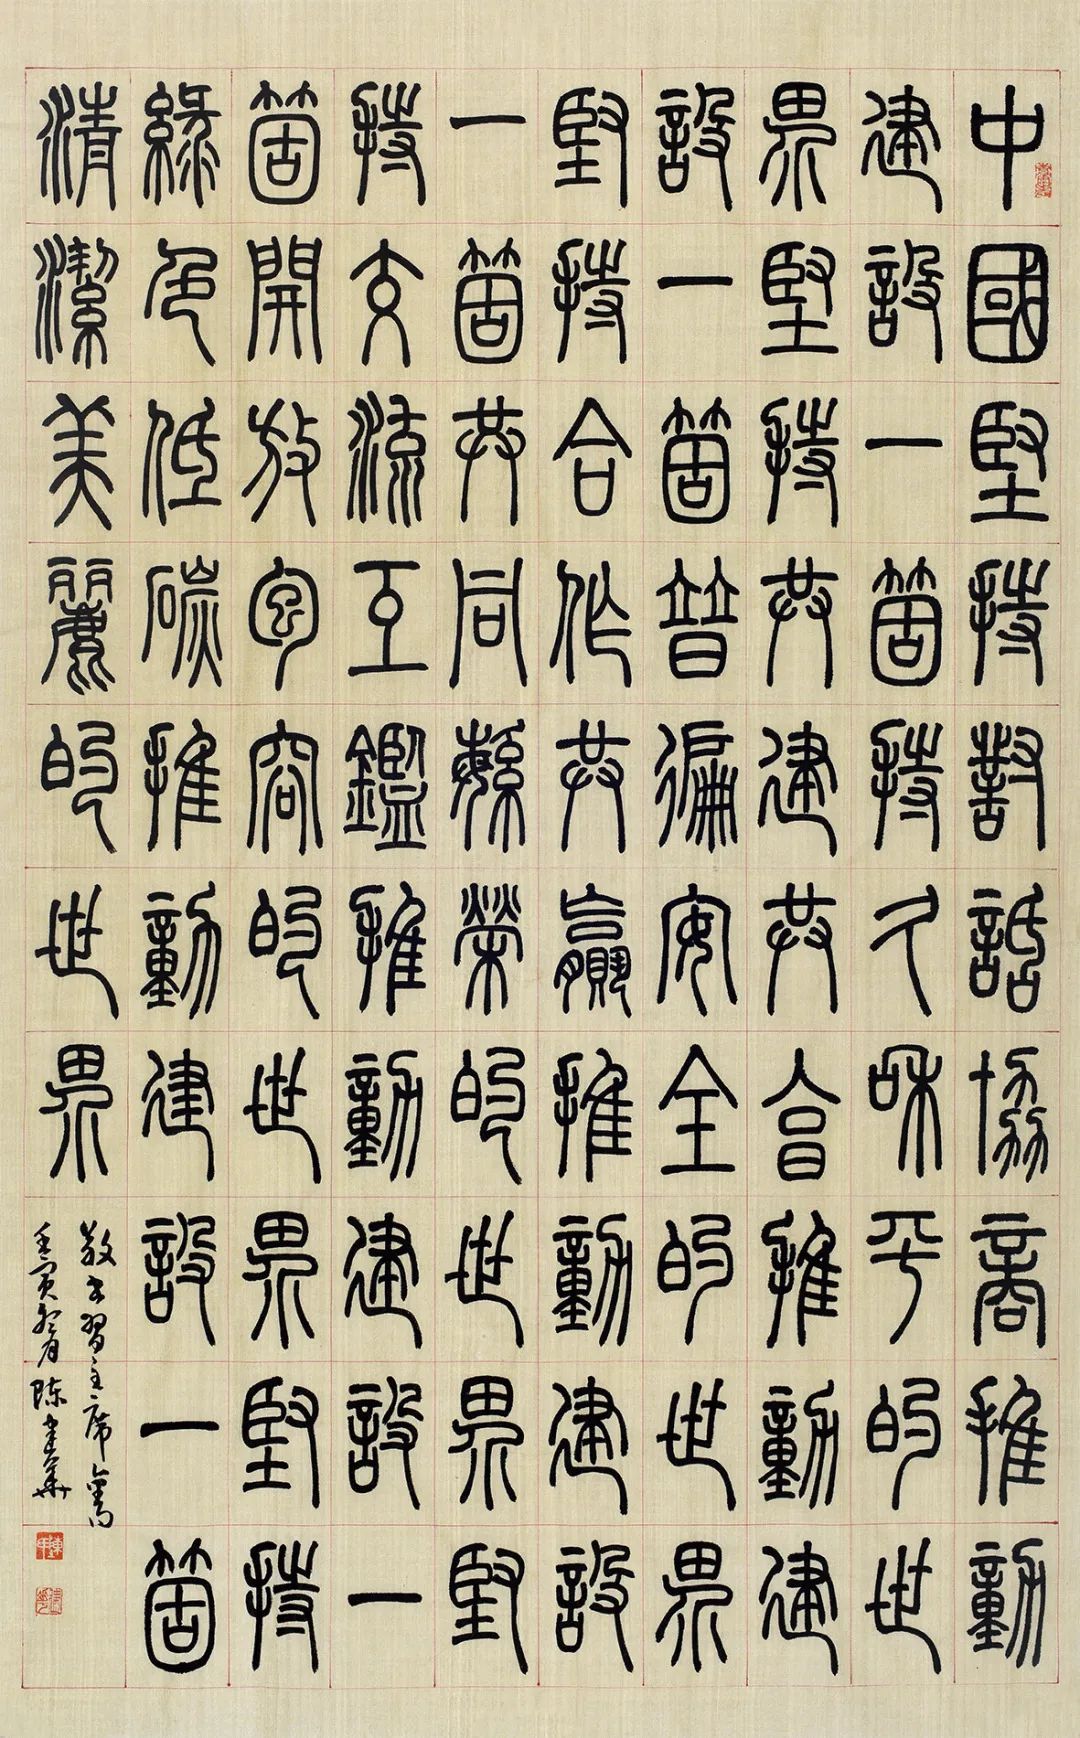 中國堅持對話協商推動
建設一箇持久和平的世
界堅持共建共享推動建
設一箇普徧安全的世界
堅持合作共贏推動建設
一箇共同繁榮的世界堅
持交流互鑑推動建設一
箇開放包容的世界堅持
綠色低碳推動建設一箇
清潔美麗的世界
敬書習主席
壬寅 陳建華